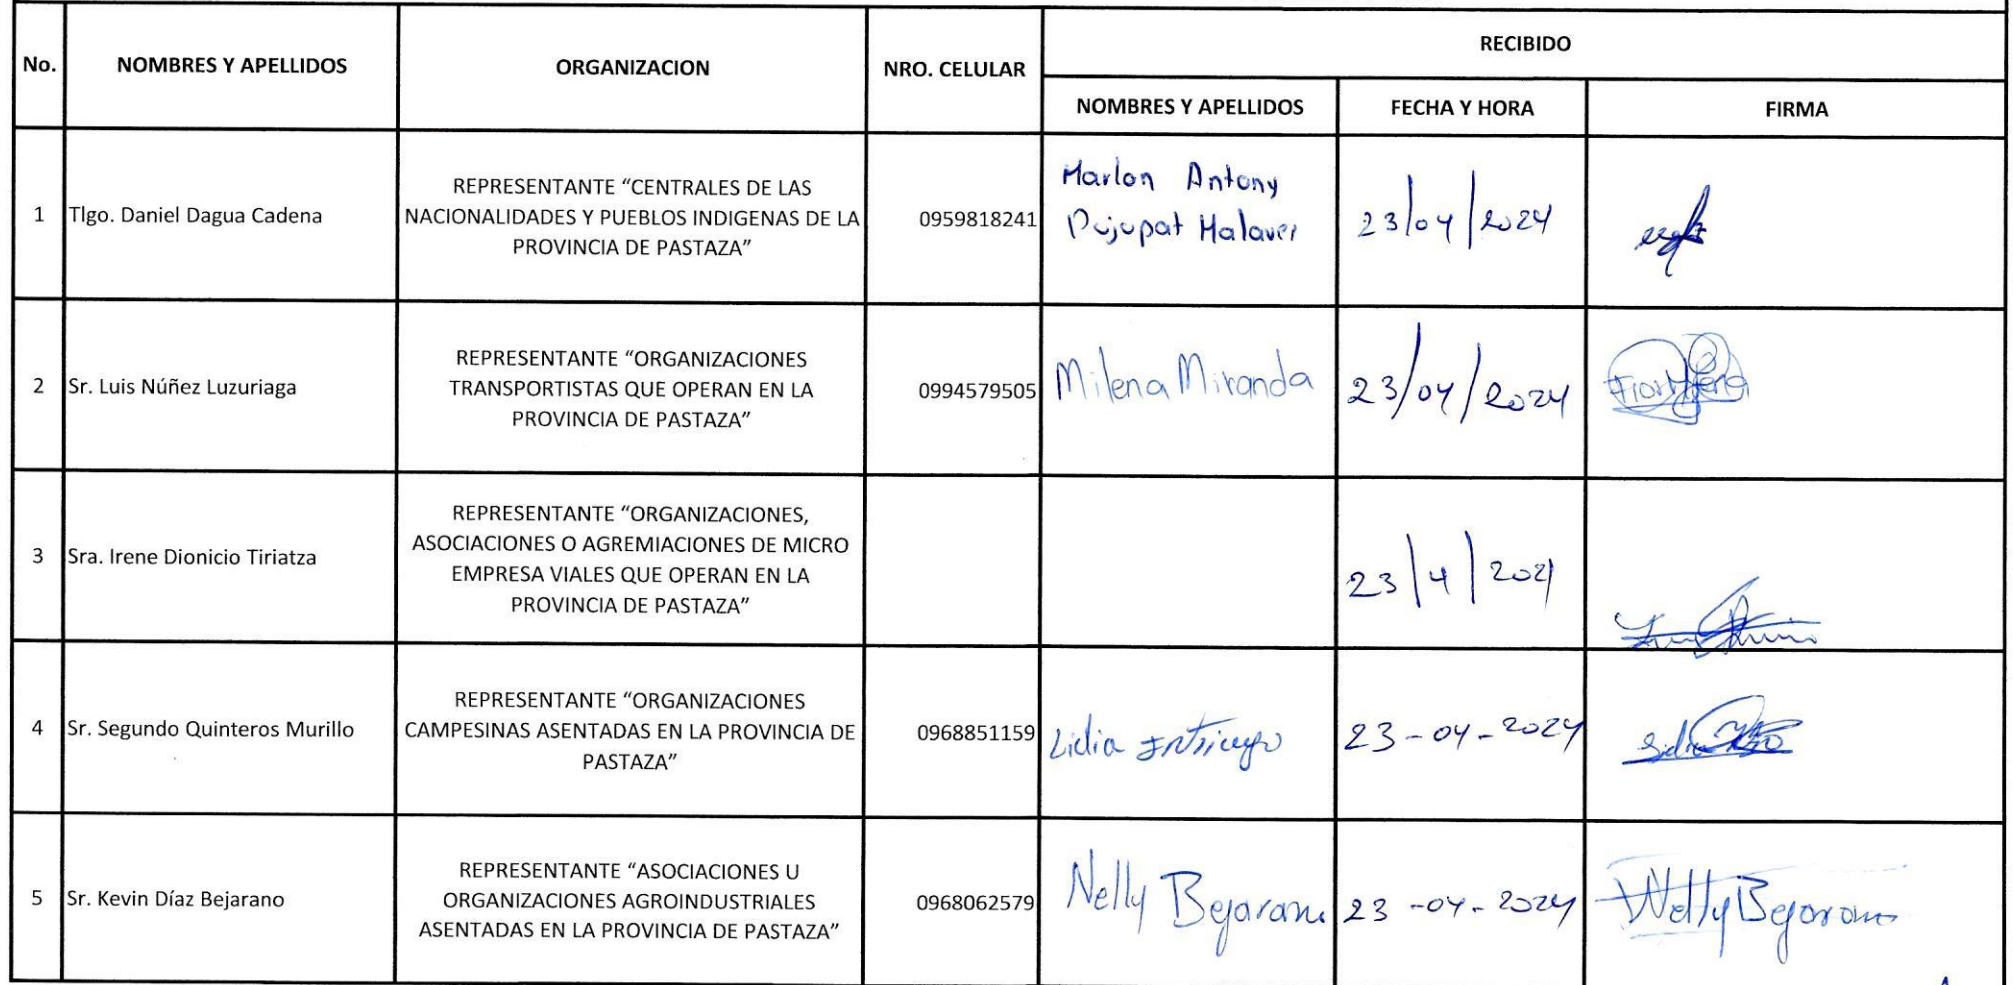 No.
NOMBRES Y APELLIDOS
ORGANIZACION
NRO. CELULAR
RECIBIDO
NOMBRES Y APELLIDOS
FECHA Y HORA
FIRMA
1
Tlgo. Daniel Dagua Cadena
REPRESENTANTE “CENTRALES DE LAS
NACIONALIDADES Y PUEBLOS INDIGENAS DE LA
PROVINCIA DE PASTAZA”
0959818241
Marlon Antony
Pujupat Malaver
23/04/2024
2
Sr. Luis Núñez Luzuriaga
REPRESENTANTE “ORGANIZACIONES
TRANSPORTISTAS QUE OPERAN EN LA
PROVINCIA DE PASTAZA”
0994579505
Milena Miranda
23/04/2024
3
Sra. Irene Dionicio Tiriatza
REPRESENTANTE “ORGANIZACIONES,
ASOCIACIONES O AGREMIACIONES DE MICRO
EMPRESA VIALES QUE OPERAN EN LA
PROVINCIA DE PASTAZA”
23/4/
4
Sr. Segundo Quinteros Murillo
REPRESENTANTE “ORGANIZACIONES
CAMPESINAS ASENTADAS EN LA PROVINCIA DE
PASTAZA”
0968851159
Lidia
23-04-2024
5
Sr. Kevin Díaz Bejarano
REPRESENTANTE “ASOCIACIONES U
ORGANIZACIONES AGROINDUSTRIALES
ASENTADAS EN LA PROVINCIA DE PASTAZA”
0968062579
Nelly Bejarano
23-04-2024
Nelly Bejarano